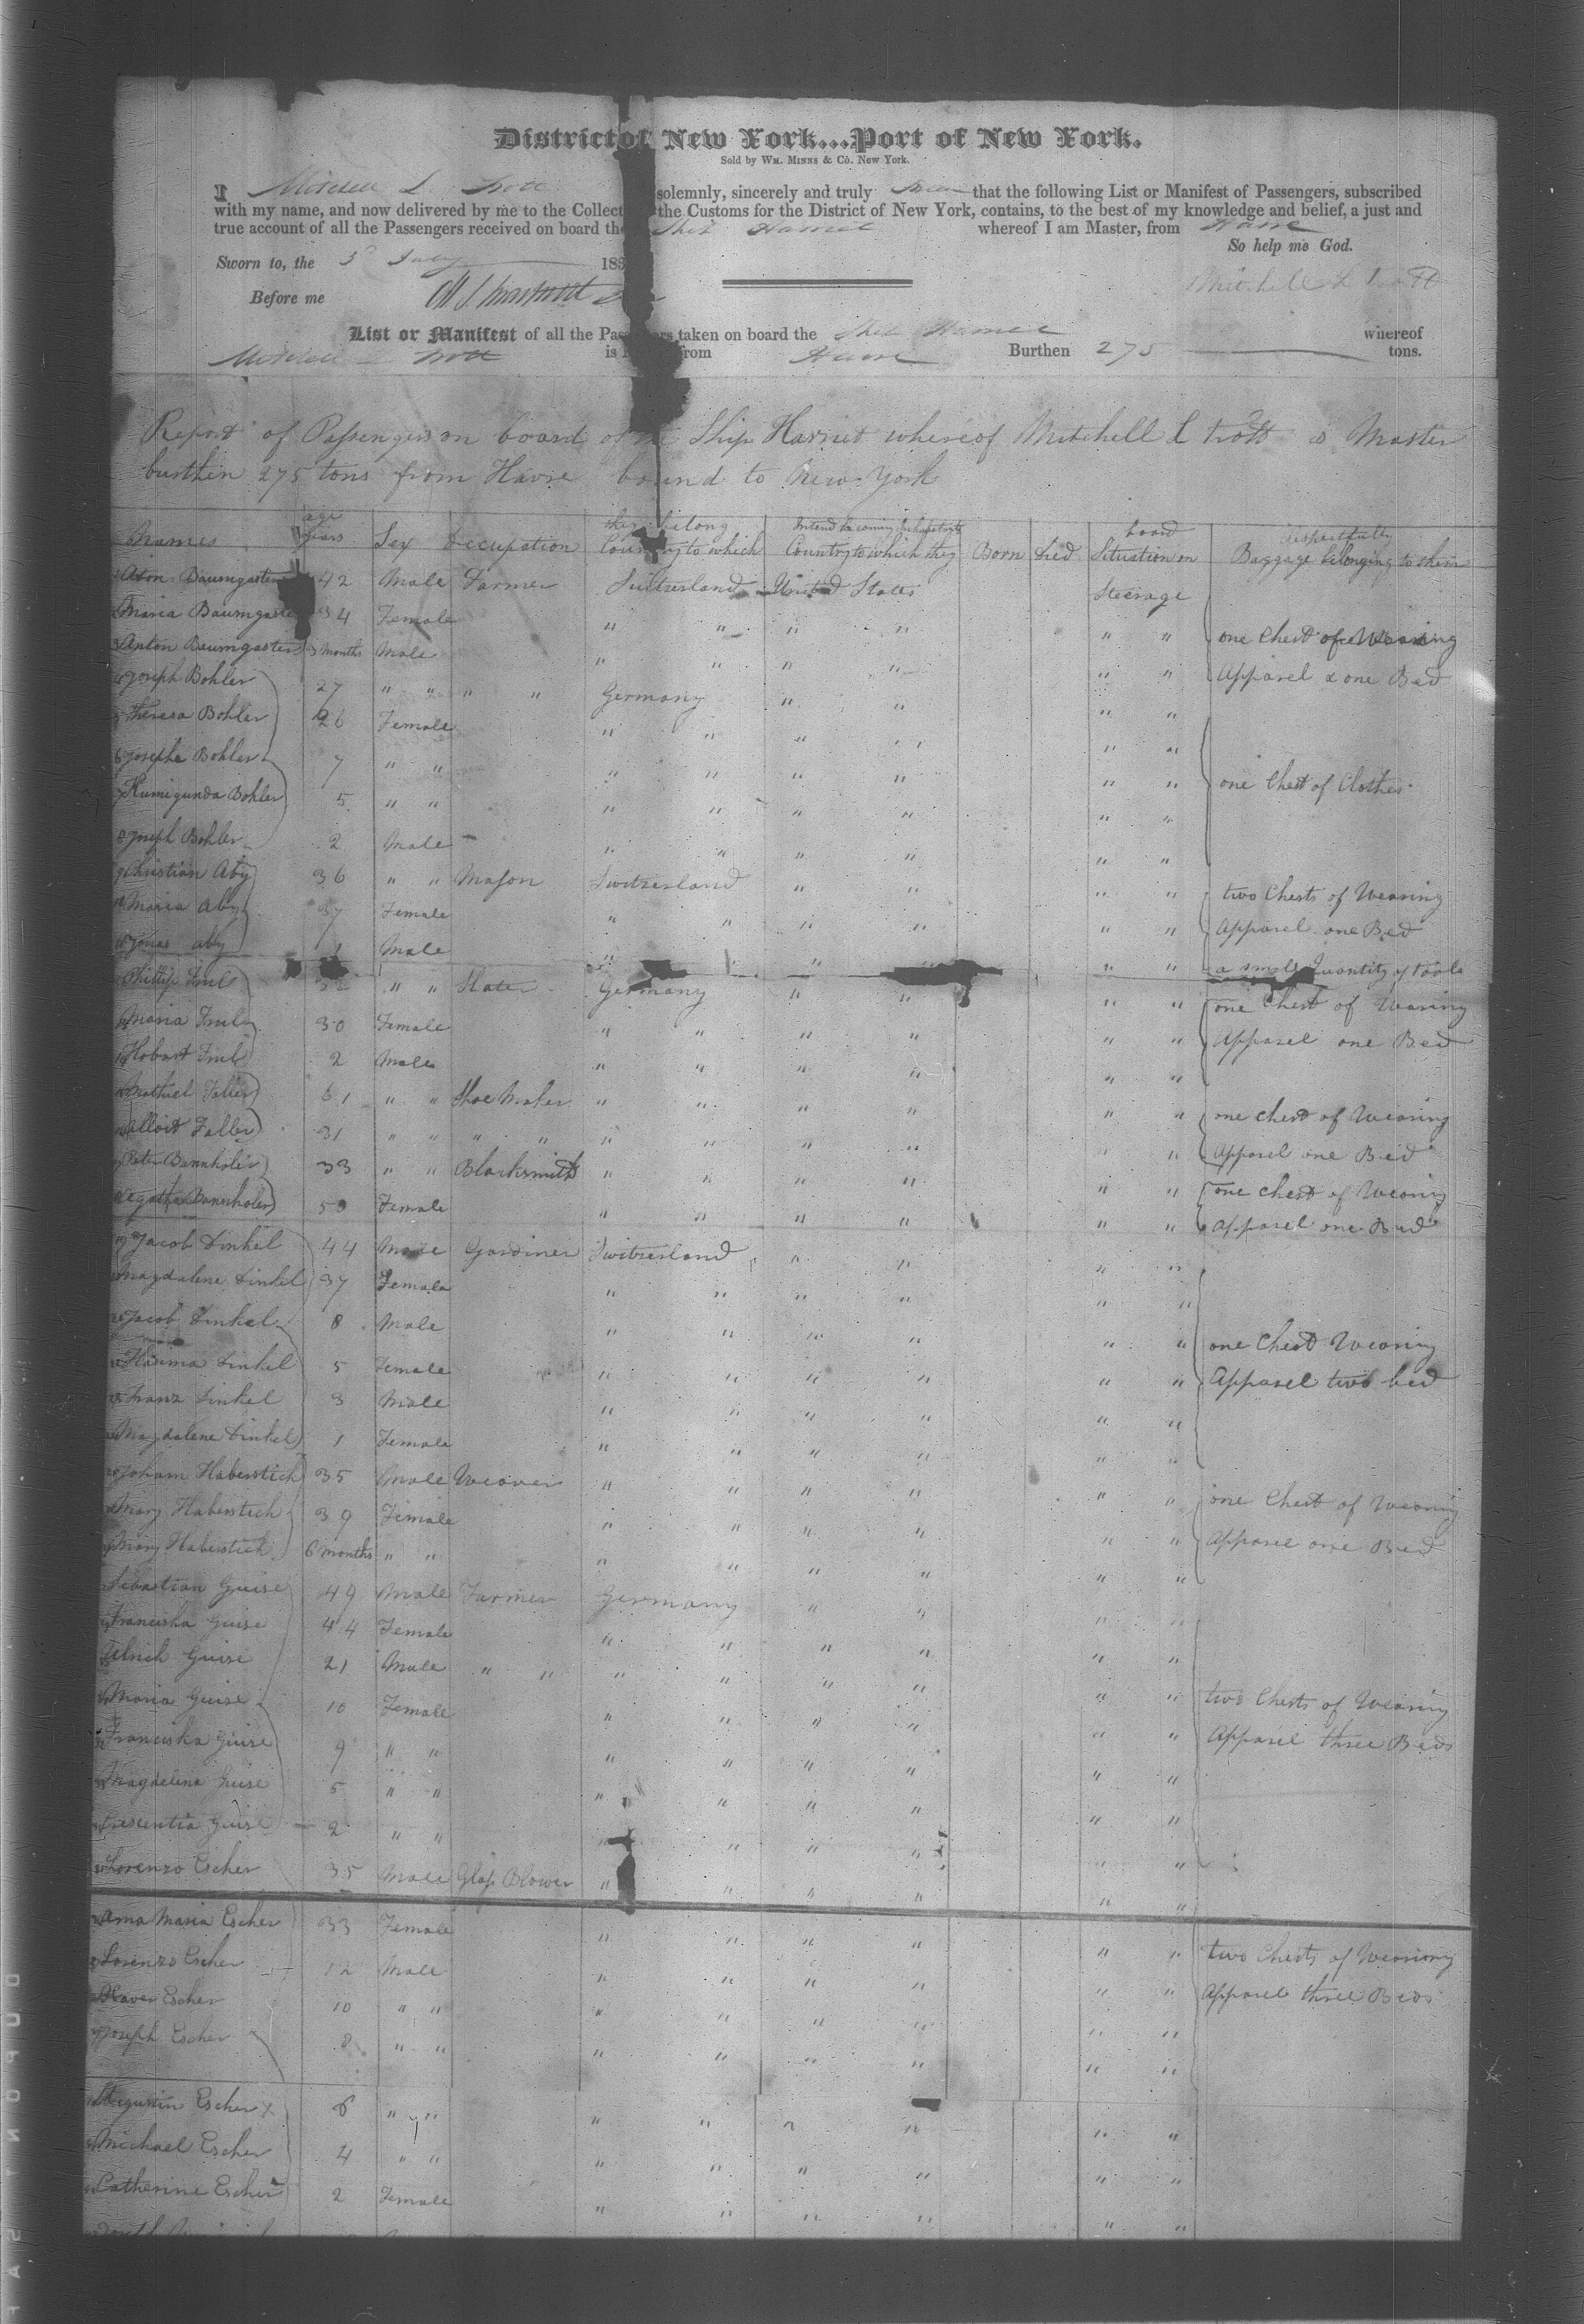 District of New York...Port of New York.
Sold by WM. MINNS & Co. New York.
I Mitchell L. Trott solemnly, sincerely and truly Swear that the following List or Manifest of Passengers, subscribed
with my name, and now delivered by me to the Collect the Customs for the District of New York, contains, to the best of my knowledge and belief, a just and
true account of all the Passengers received on board the Ship Harriet whereof I am Master, from Havre
So help me God.
Sworn to, the 3d July 183
Mitchell L Trott
Before me
List or Manifest of all the Pas rs taken on board the Ship Harriet whereof
Mitchell L Trott is from Havre Burthen 275 tons.
Report of Passengers on board of the Ship Harriet whereof Mitchell L trott is Master
burthen 275 tons from Havre bound to New York
Names age years Sex Occupation Country to which they belong Country to which they Intend becoming Inhabitants Born Died Situation on board Baggage belonging to them respectfully
Aton Baumgarten 42 Male Farmer Suitzerland United States Steerage
Maria Baumgarte 34 Female " " " " " " one Chest of Wearing
Anton Baumgarten 3 months Male " " " " " " Apparel & one Bed
Joseph Bohler 27 " " " " Germany " " " "
Theresa Bohler 26 Female " " " " " "
Josepha Bohler 7 " " " " " " " " one Chest of Clothes
Kumigunda Bohler 5 " " " " " " " "
Joseph Bohler 2 Male " " " " " "
Christian Aby 36 " " Mason Switzerland " " " " two Chests of Wearing
Maria Aby 37 Female " " " " " " Apparel one Bed
Jonas aby 1 Male " " " " " " a small Quantity of tools
Phillip 32 " " Slater Germany " " " " one Chest of Wearing
Maria 30 Female " " " " " " Apparel one Bed
Hobart 2 Male " " " " " "
Mathiel Faller 61 " " Shoe Maker " " " " " " one chest of Wearing
Alloit Faller 31 " " " " " " " " " " Apparel one Bed
Peter Bannholer 33 " " Blacksmith " " " " " " one chest of Wearing
Agatha Bannholer 50 Female " " " " " " apparel one Bed
Jacob Dinkel 44 Male Gardiner Switzerland " " " "
Magdalene Dinkel 37 Female " " " " " "
Jacob Dinkel 8 Male " " " " " " one Chest Wearing
Dinkel 5 Female " " " " " " Apparel two bed
Franz Dinkel 3 Male " " " " " "
Magdalene Dinkel 1 Female " " " " " "
Joham Haberstich 35 Male Weaver " " " " " " one Chest of Wearing
Mary Haberstich 39 Female " " " " " " Apparel one Bed
Mary Haberstich 6 months " " " " " " " "
Sebastian Guise 49 Male Farmer Germany " " " "
Franciska Guise 44 Female " " " " " "
Ulrich Guise 21 Male " " " " " " " "
Maria Guise 10 Female " " " " " " two Chests of Wearing
Franciska Guise 9 " " " " " " " " Apparel three Beds
Magdelina Guise 5 " " " " " " " "
Crescentia Guise 2 " " " " " " " "
Lorenzo Escher 35 Male Glass Blower " " " " " "
Anna Maria Escher 33 Female " " " " " " two Chests of Wearing
Lorenzo Escher 12 Male " " " " " " Apparel three Beds
Xaver Escher 10 " " " " " " " "
Joseph Escher 8 " " " " " " " "
Augustin Escher 6 " " " " " " " "
Michael Escher 4 " " " " " " " "
Catherine Escher 2 Female " " " " " "